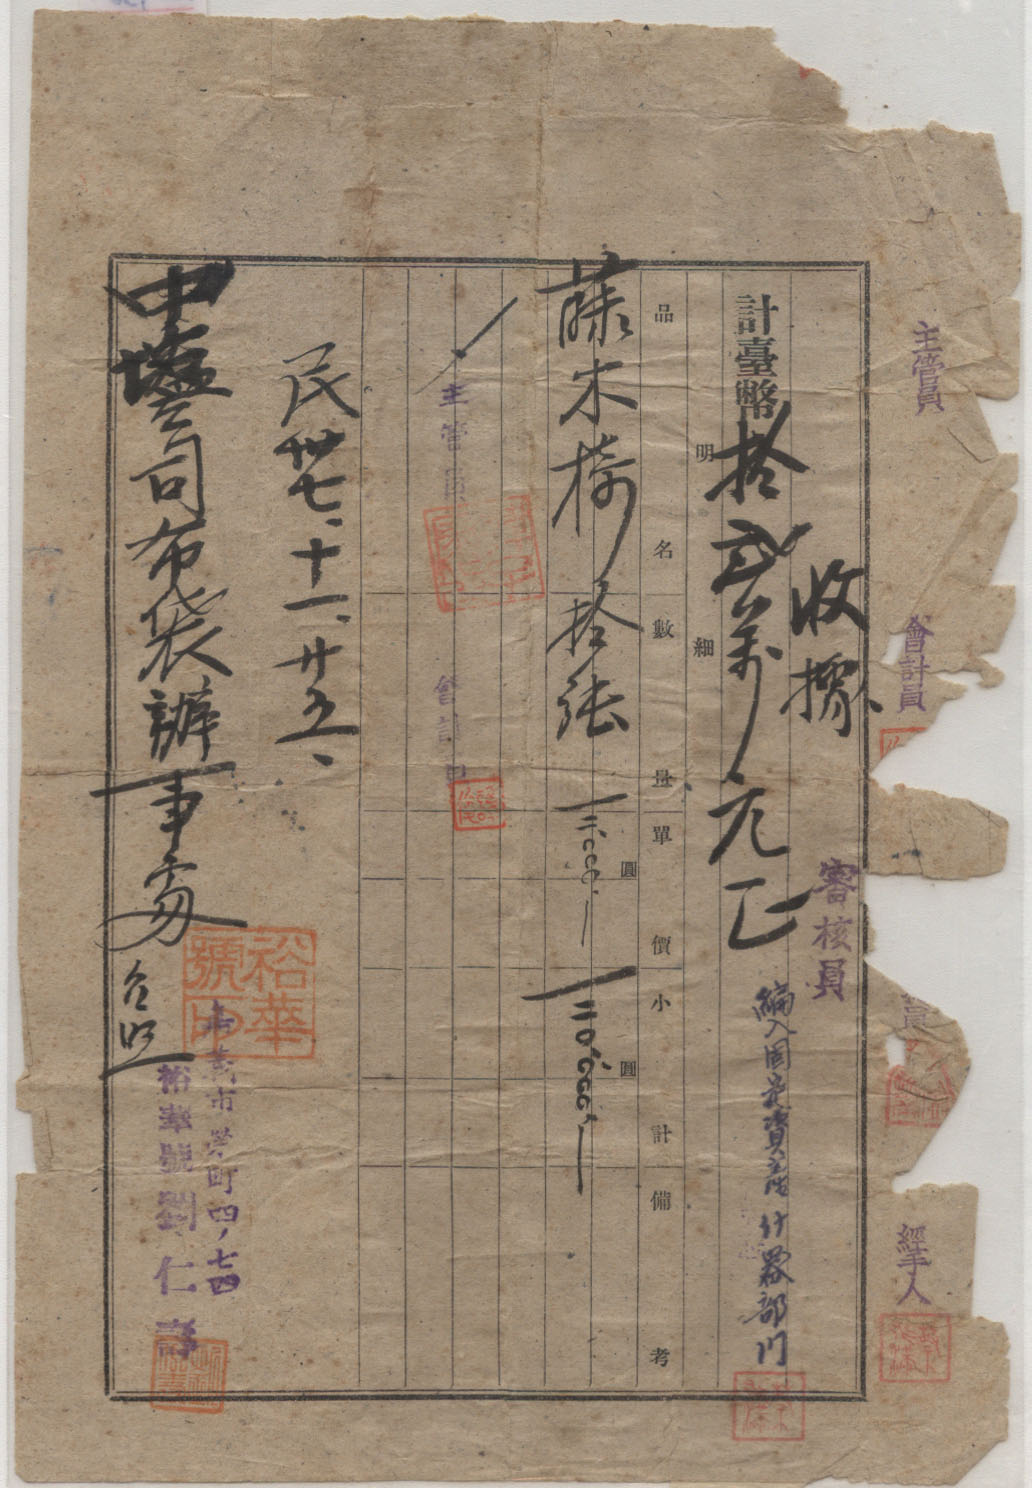 主管員
會計員
審核員
經手人
收據
計臺幣拾弍萬元正
編入固定資產 什器部門
明細
品名 數量 單價 小計 備考
圓 圓
藤木椅拾張 一二〇〇〇 一二〇〇〇〇
主管員
會計員
民卅七、十一、廿五、
中塩司布袋辦事處 台照
裕華號印
嘉義市榮町四ノ七四
裕華號 劉仁壽